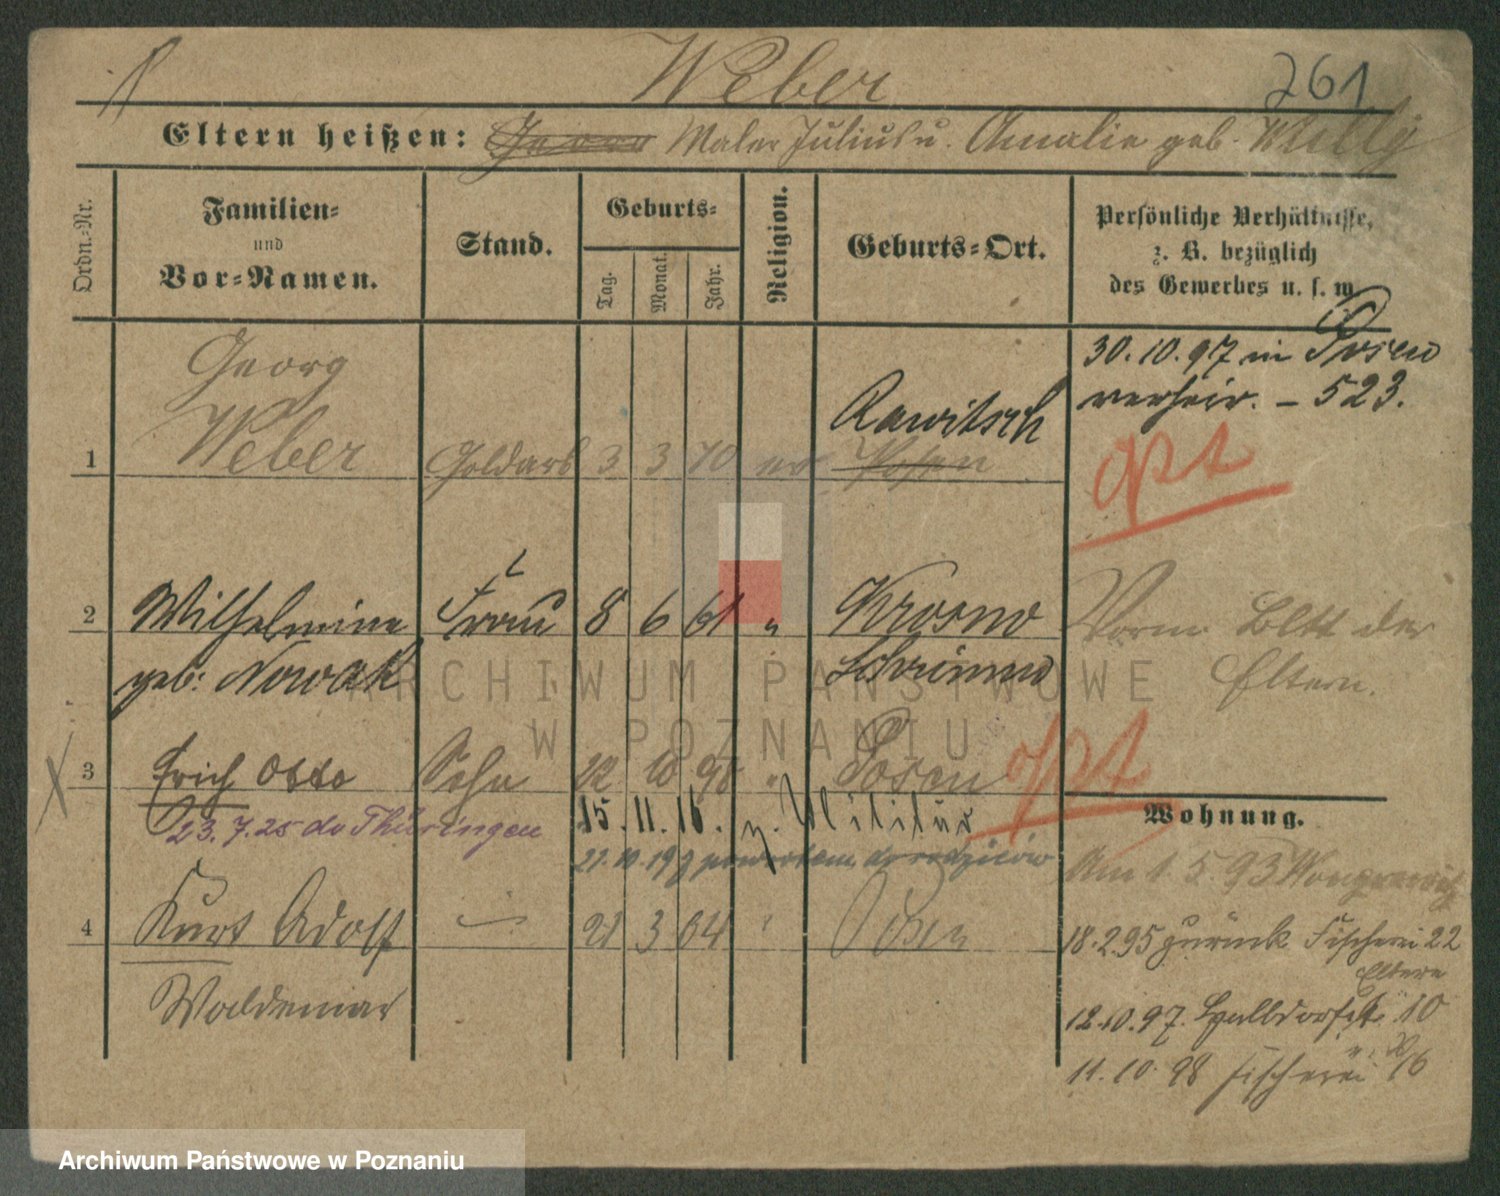 Weber
261
Eltern heißen: Georg Maler Julius u. Amalie geb. Willy
Ordn.-Nr.
Familien-
und
Vor-Namen.
Stand.
Geburts-
Tag.
Monat.
Jahr.
Religion.
Geburts-Ort.
Persönliche Verhältnisse,
z. B. bezüglich
des Gewerbes u. s. w.
30. 10. 97 in Posen
verheir. - 523.
Georg
Rawitsch
1 Weber Goldarb 3 3 70 ev Posen
opt
2 Wilhelmine Frau 8 6 61 " Krosno
geb: Nowak Schrimm
Vorm Bltt der
Eltern.
3 Erich Otto Sohn 22 10 98 " Posen
opt
23.7.25 do Thüringen
15. 11. 16. z. Militär
21.10.19 powrotem do rodziców
4 Kurt Adolf 21 3 04 " Posen
Waldemar
Wohnung.
Am 1. 5. 93 Wongrowitz
18.2.95 zurück Fischerei 22
Eltern
12.10.97. Halbdorfst. 10
11. 10. 98 Fischerei
ARCHIWUM PAŃSTWOWE
W POZNANIU
Archiwum Państwowe w Poznaniu